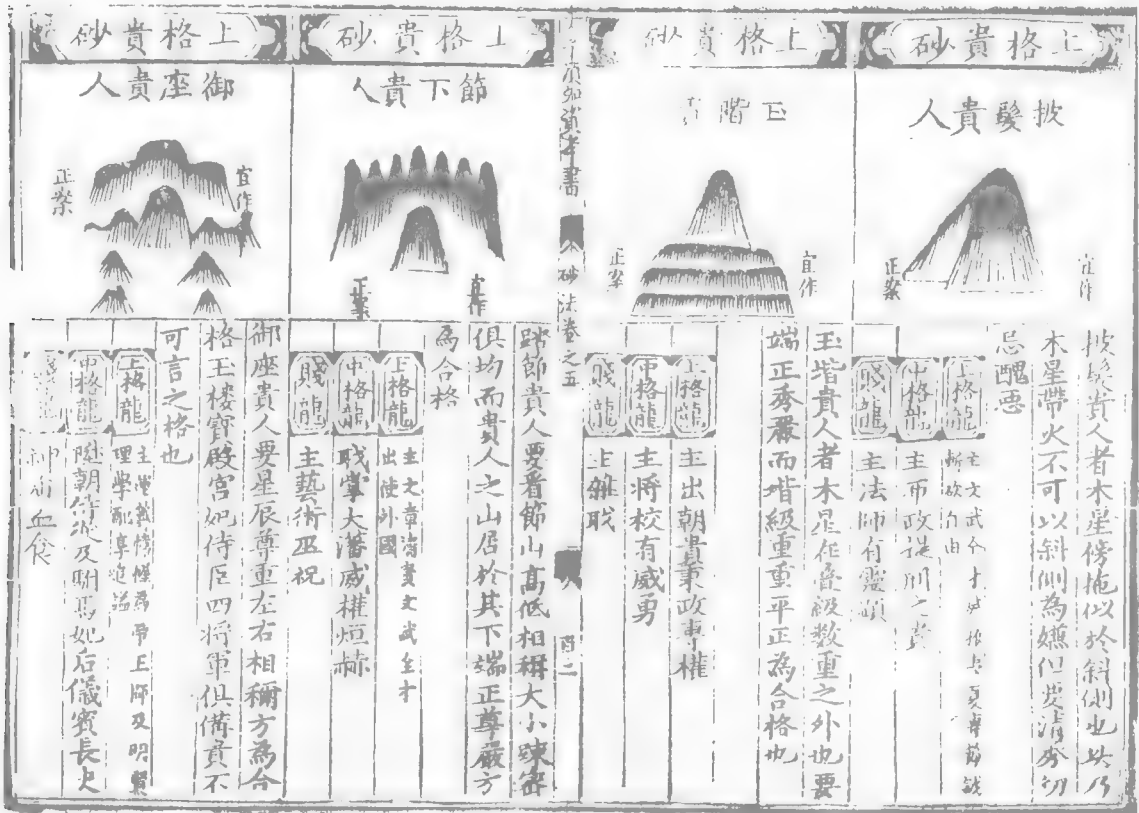 上格貴砂
披髮貴人
宜作
正案
披髮貴人者木星傍拖似於斜側也此乃
木星帶火不可以斜側為嫌但要清秀切
忌醜惡
上格龍
主文武全才
斬砍自由
中格龍
主布政提刑之貴
賤龍
主法師有靈顯
上格貴砂
玉階貴人
宜作
正案
玉堦貴人者木星在叠級數重之外也要
端正秀嚴而堦級重重平正為合格也
上格龍
主出朝貴秉政專權
中格龍
主將校有威勇
賤龍
主雜職
砂法卷之五
上格貴砂
節下貴人
宜作
正案
踏節貴人要看節山高低相稱大小踈密
俱均而貴人之山居於其下端正尊嚴方
為合格
上格龍
主文章清貴文武全才
出使外國
中格龍
職掌大藩威權烜赫
賤龍
主藝術巫祝
上格貴砂
御座貴人
宜作
正案
御座貴人要星辰尊重左右相稱方為合
格玉楼寶殿宮妃侍臣四將軍俱備貴不
可言之格也
上格龍
帝王師及明賢
理學配享追謚
中格龍
陞朝侍從及駙馬妃后儀賓長史
神庙血食